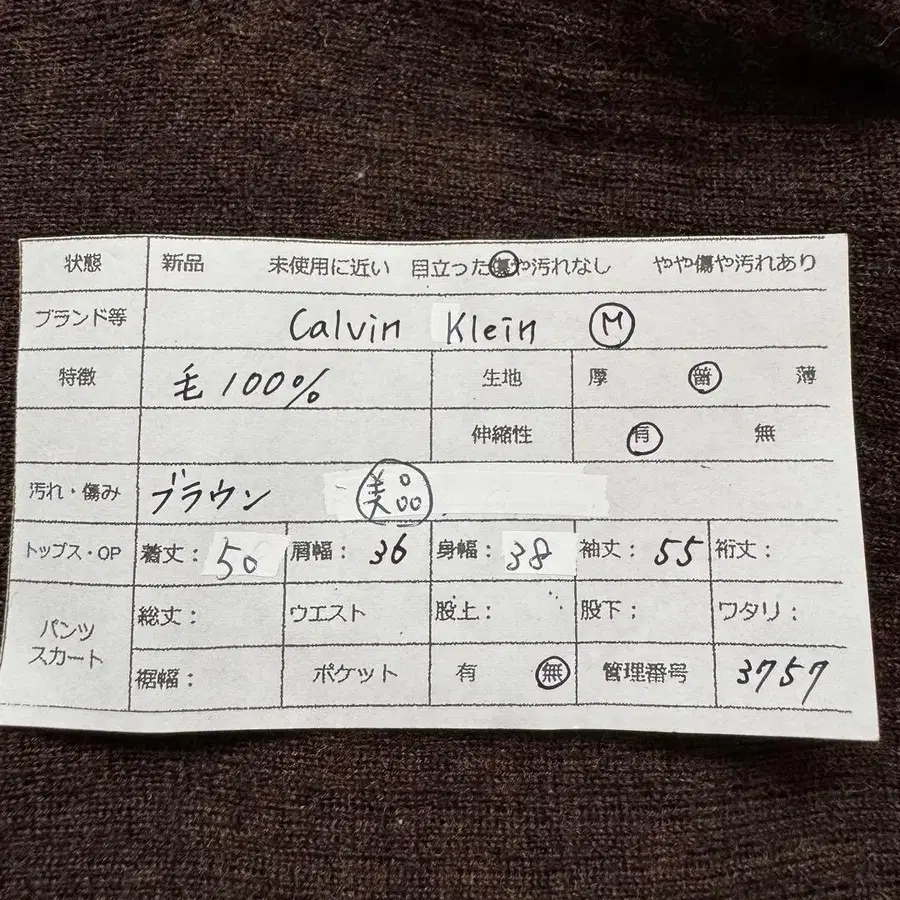 状態 新品 未使用に近い 目立った傷や汚れなし やや傷や汚れあり
ブランド等 Calvin Klein M
特徴 毛100% 生地 厚 普 薄
伸縮性 有 無
汚れ・傷み ブラウン 美品
トップス・OP 着丈: 50 肩幅: 36 身幅: 38 袖丈: 55 裄丈:
パンツ スカート 総丈: ウエスト 股上: 股下: ワタリ:
裾幅: ポケット 有 無 管理番号 3757